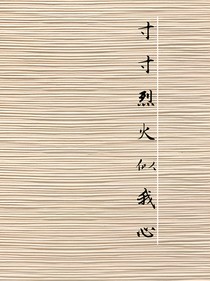 寸寸烈火似我心